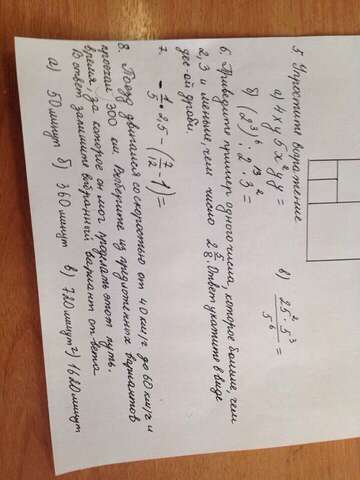 5 Упростите выражение
а) 4xy5x²yy =
б) (2³)⁶ : 2¹³ · 3² =
в) 25² · 5³ / 5⁶ =
6. Приведите пример одного числа, которое больше, чем
2,3 и меньше, чем число 2 5/8. Ответ укажите в виде
дес-ой дроби.
7. - 1/5 · 2,5 - (7/12 - 1) =
8. Поезд двигался со скоростью от 40 км/ч до 60 км/ч и
проехал 300 км. Выберите из предложенных вариантов
время, за которое он мог проделать этот путь.
В ответ запишите выбранный вариант ответа
а) 50 минут б) 360 минут в) 720 минут г) 1620 минут